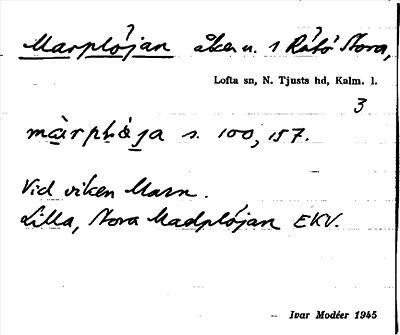 Marplöjan åker u. 1 Råbö Stora,
Lofta sn, N. Tjusts hd, Kalm. l.
3
s. 100, 157.
Vid viken Marn.
Lilla, Stora Madplöjan EKV.
Ivar Modéer 1945